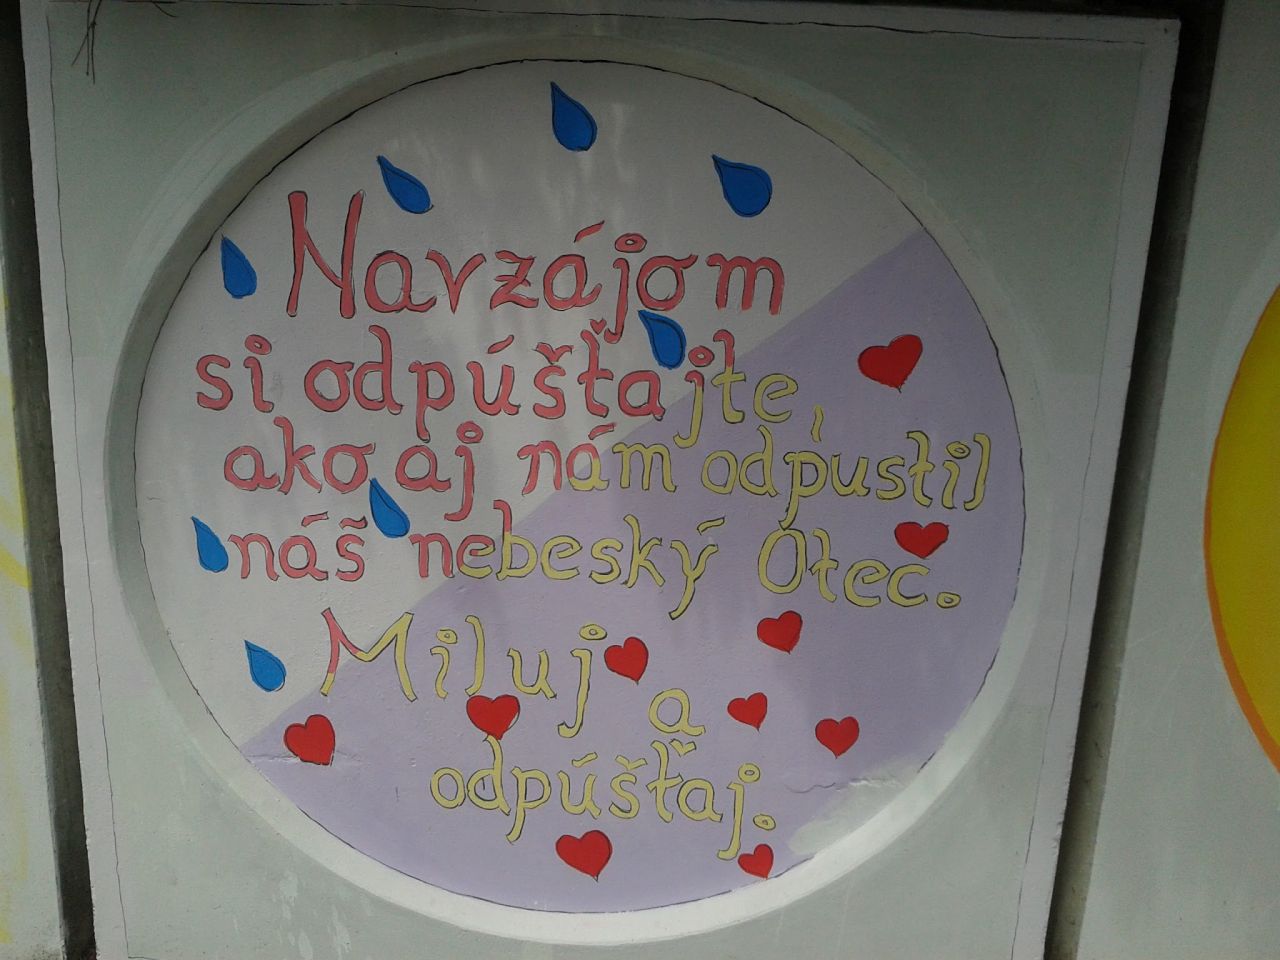 Navzájom
si odpúšťajte,
ako aj nám odpustil
náš nebeský Otec.
Miluj a
odpúšťaj.